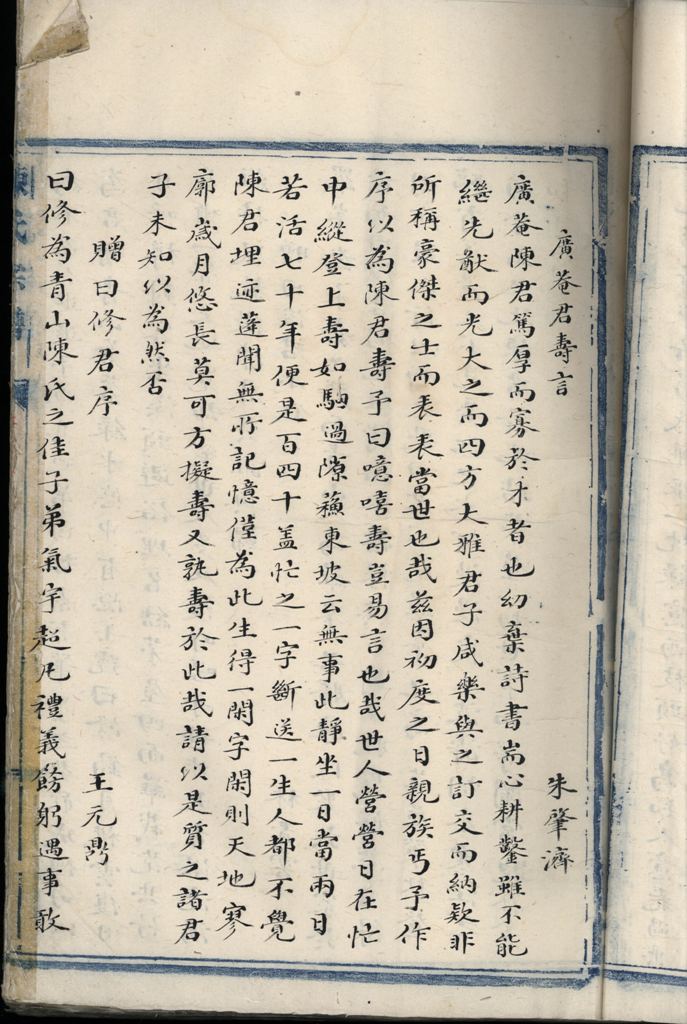 廣菴君壽言 朱肇濟
廣菴陳君篤厚而寡於才者也幼棄詩書耑心耕鑿雖不能
繼先猷而光大之而四方大雅君子咸樂與之訂交而納欵非
所稱豪傑之士而表表當世也哉茲因初度之日親族丐予作
序以為陳君壽予曰噫嘻壽豈易言也哉世人營營日在忙
中縱登上壽如駒過隙蘓東坡云無事此靜坐一日當兩日
若活七十年便是百四十盖忙之一字斷送一生人都不覺
陳君埋迹蓬閭無所記憶僅為此生得一閑字閑則天地寥
廓歲月悠長莫可方擬壽又孰壽於此哉請以是質之諸君
子未知以為然否
贈曰修君序 王元鼎
曰修為青山陳氏之佳子弟氣宇超凡禮義飭躬遇事敢
陳氏宗譜